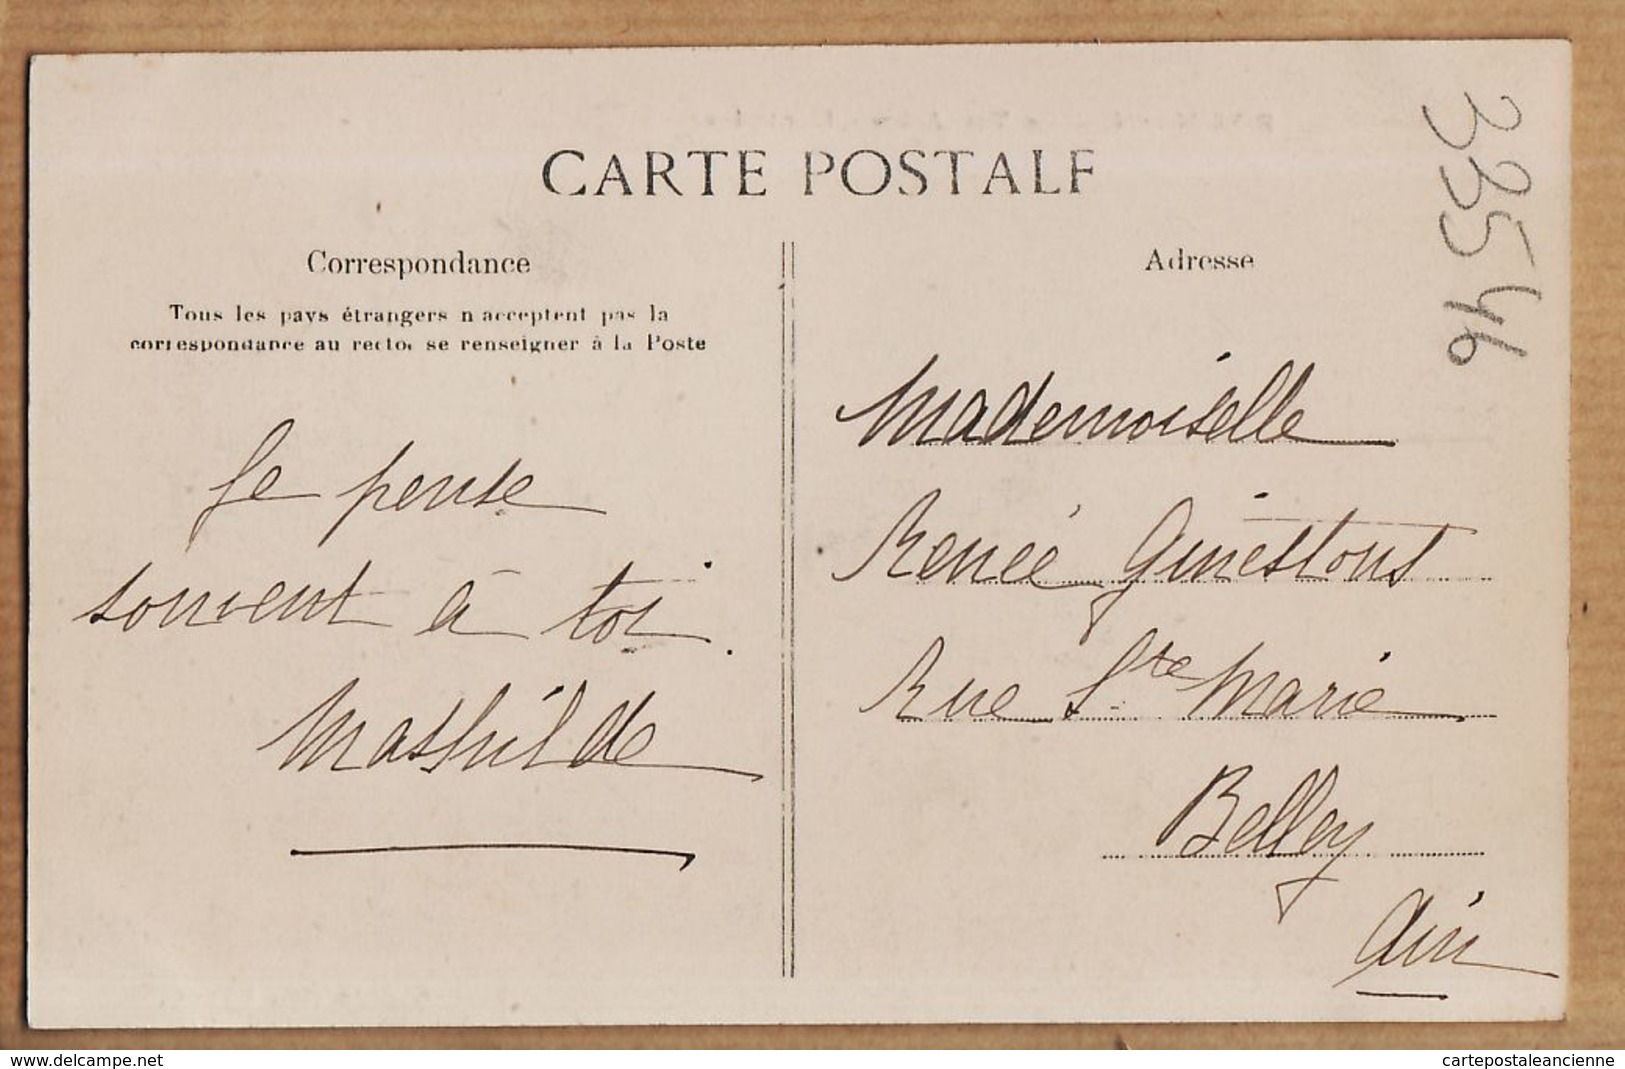 CARTE POSTALE
Correspondance
Tous les pays étrangers n'acceptent pas la
correspondance au recto, se renseigner à la Poste
Je pense
souvent à toi.
Mathilde
Adresse
Mademoiselle
Renée Ginestous
Rue Ste Marie
Belley
Ain
33546
cartepostaleancienne